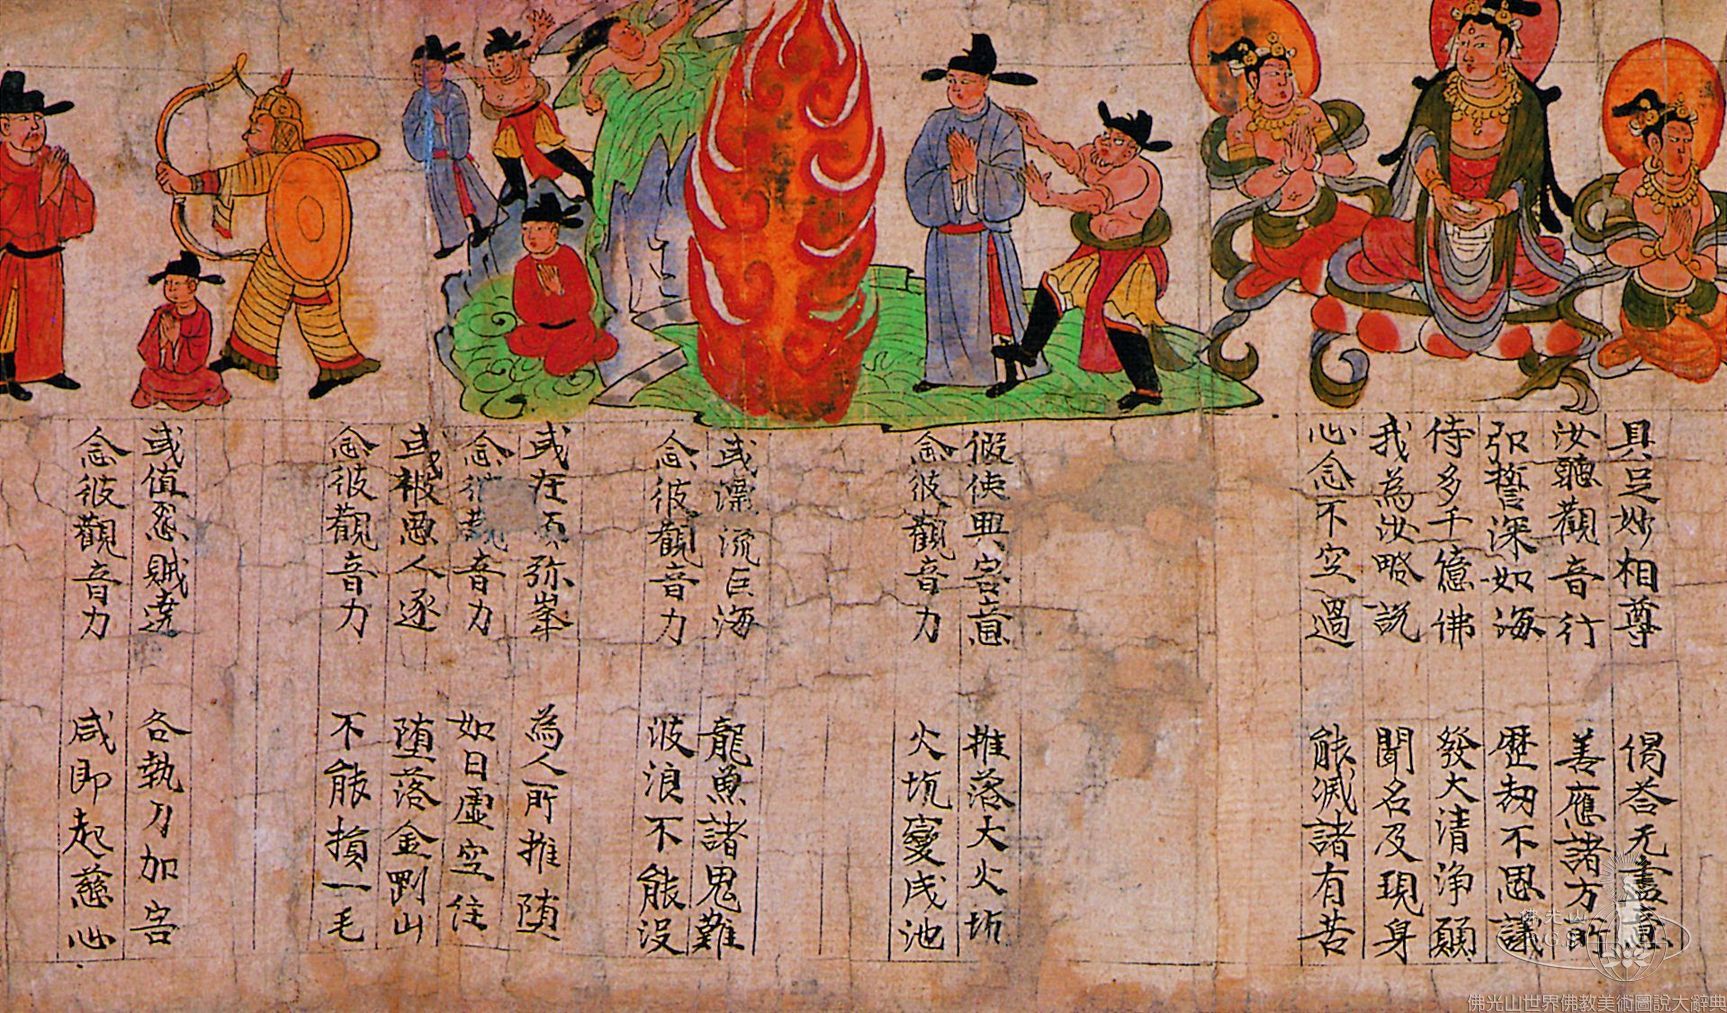 具足妙相尊　偈荅无盡意
汝聽觀音行　善應諸方所
弘誓深如海　歷劫不思議
侍多千億佛　發大清淨願
我為汝略說　聞名及現身
心念不空過　能滅諸有苦
假使興害意　推落大火坑
念彼觀音力　火坑變成池
或漂流巨海　龍魚諸鬼難
念彼觀音力　波浪不能沒
或在須弥峯　為人所推墮
念彼觀音力　如日虛空住
或被惡人逐　墮落金剛山
念彼觀音力　不能損一毛
或值怨賊遶　各執刀加害
念彼觀音力　咸即起慈心
佛光山世界佛教美術圖說大辭典